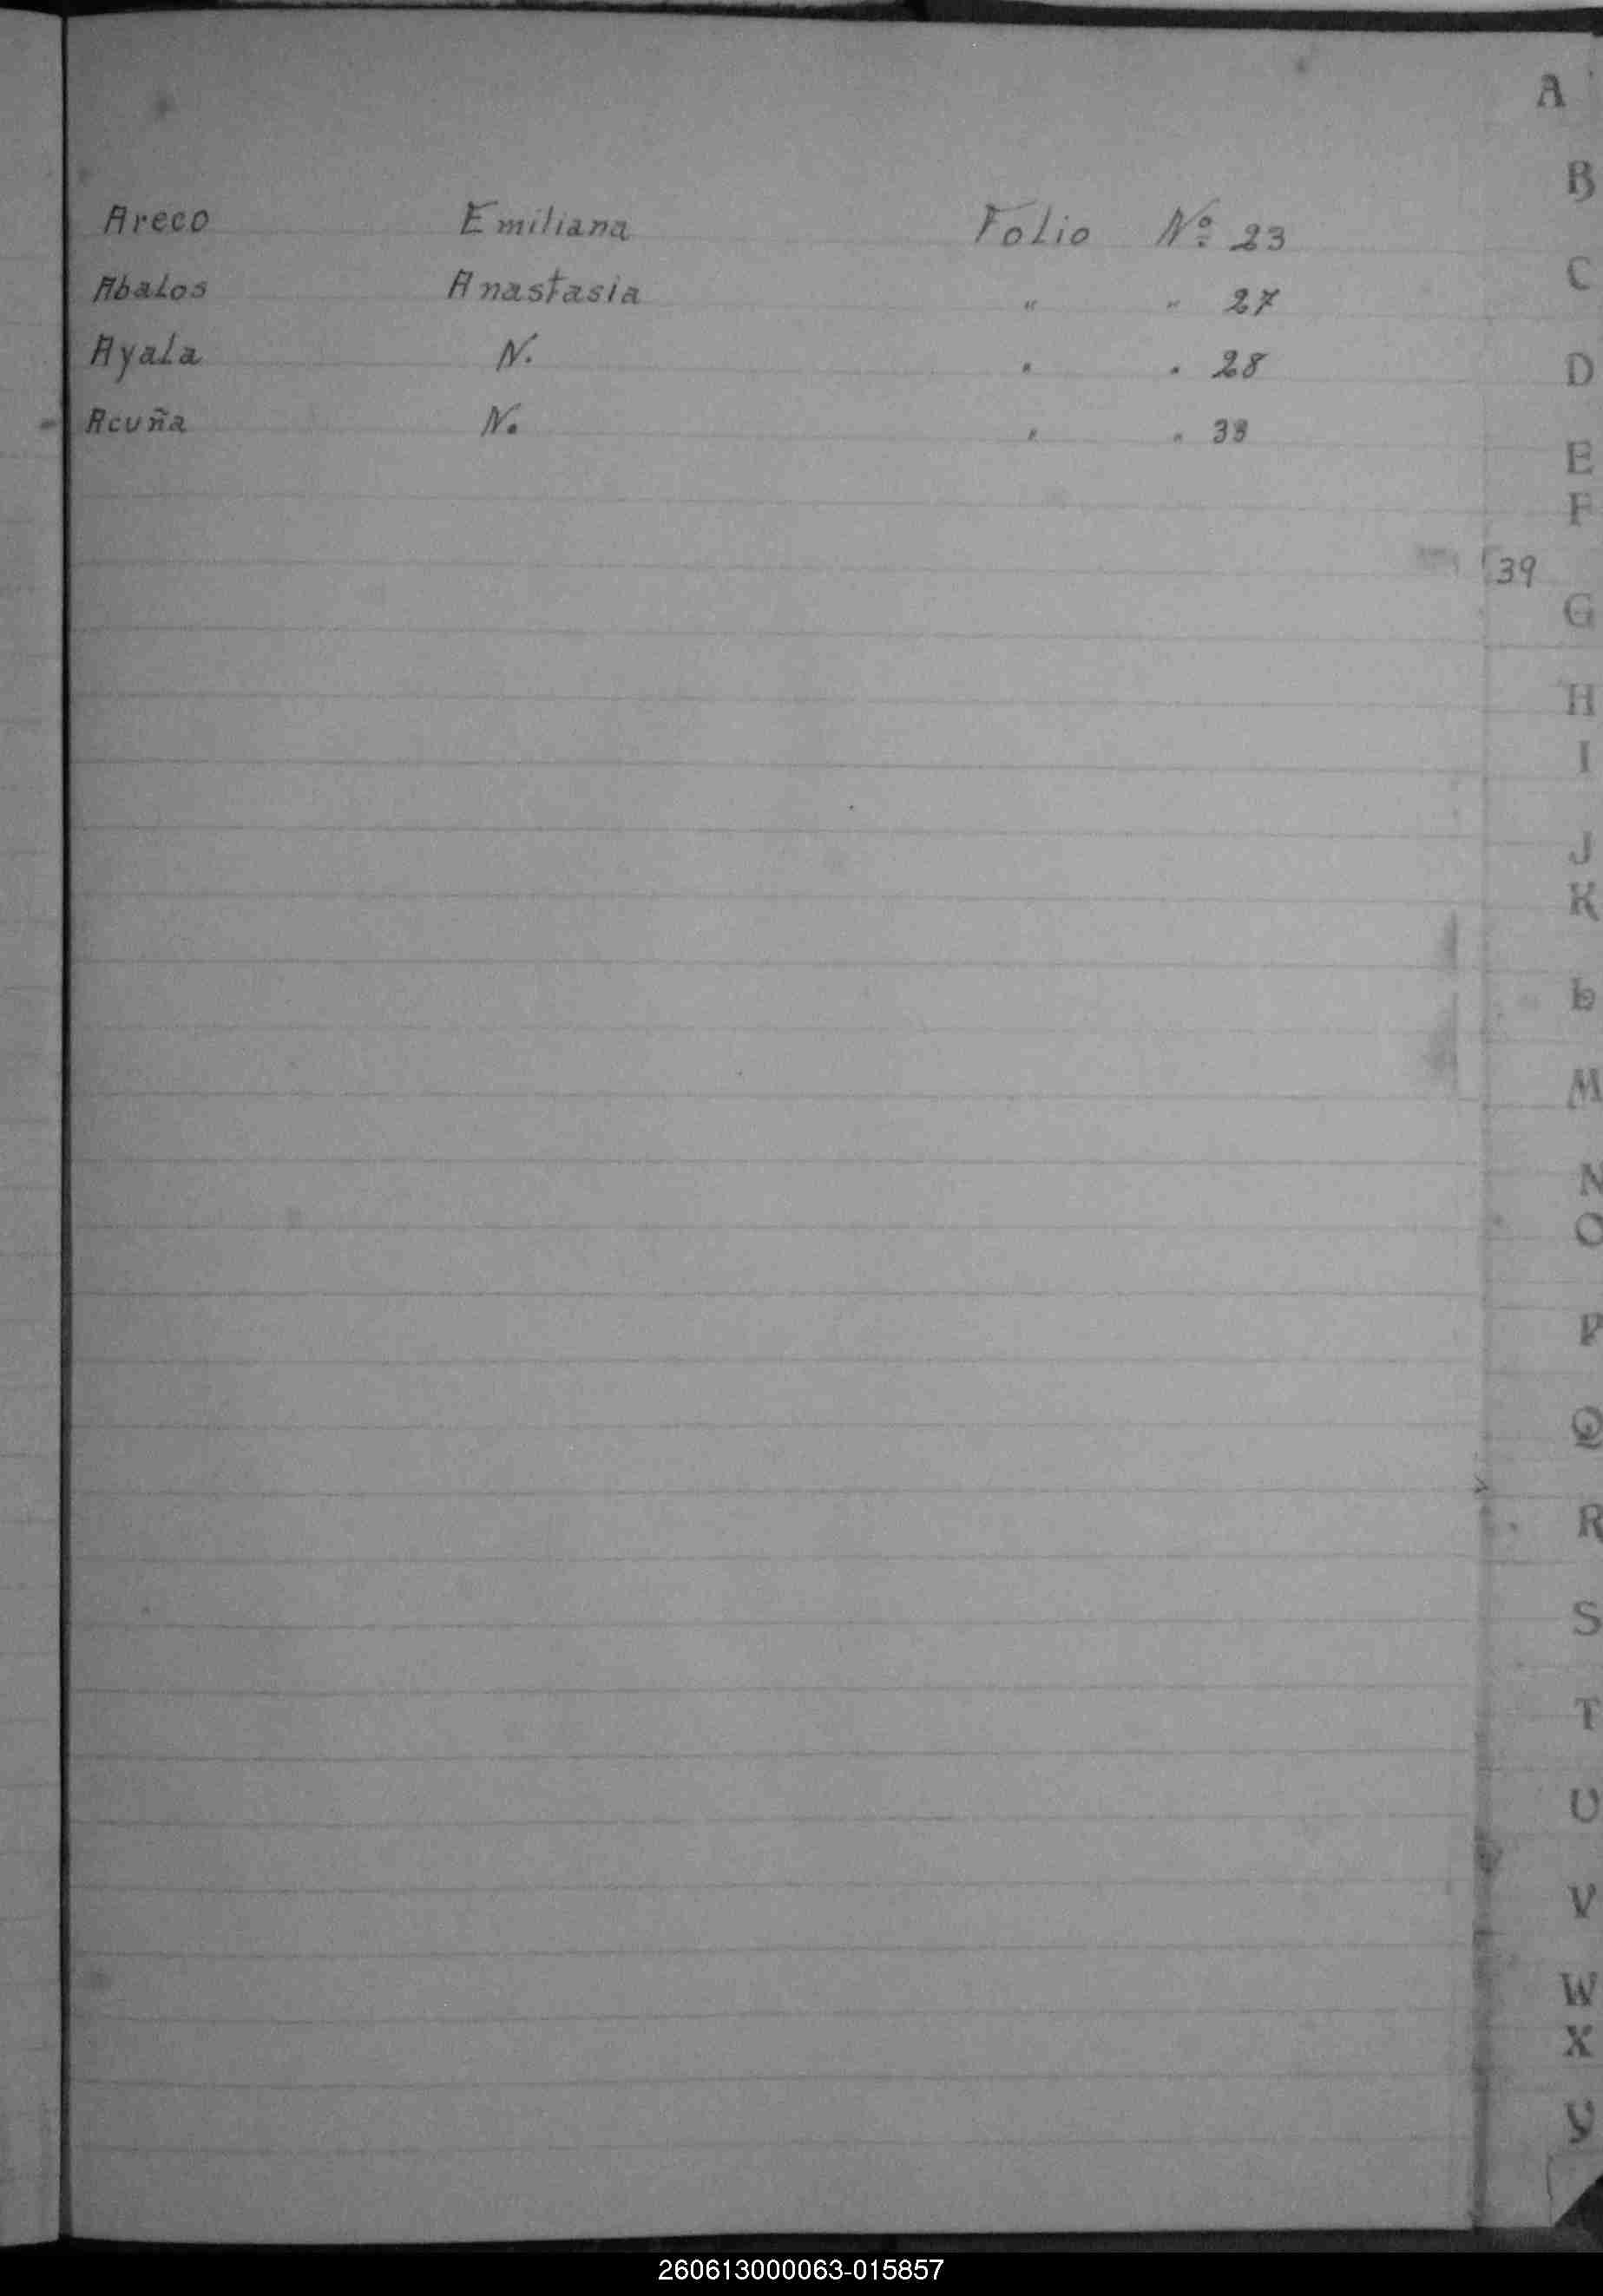 A
B
Areco Emiliana Folio Nº 23
C
Abalos Anastasia " " 27
Ayala N. " " 28
D
Acuña N. " " 33
E
F
39
G
H
I
J
K
L
M
N
O
P
Q
R
S
T
U
V
W
X
Y
260613000063-015857